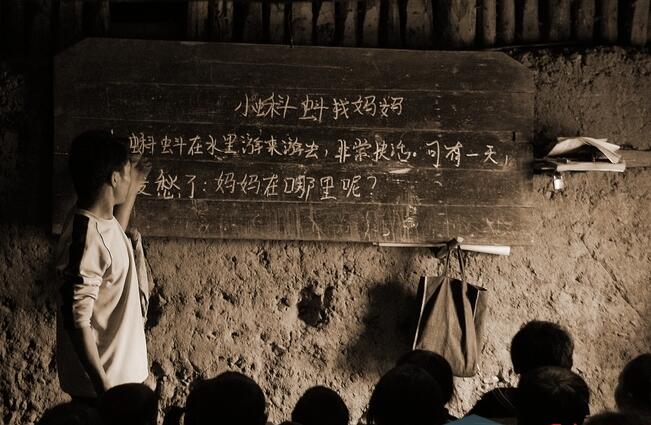 小蝌蚪找妈妈
蝌蚪在水里游来游去，非常快活。可有一天，
愁了：妈妈在哪里呢？